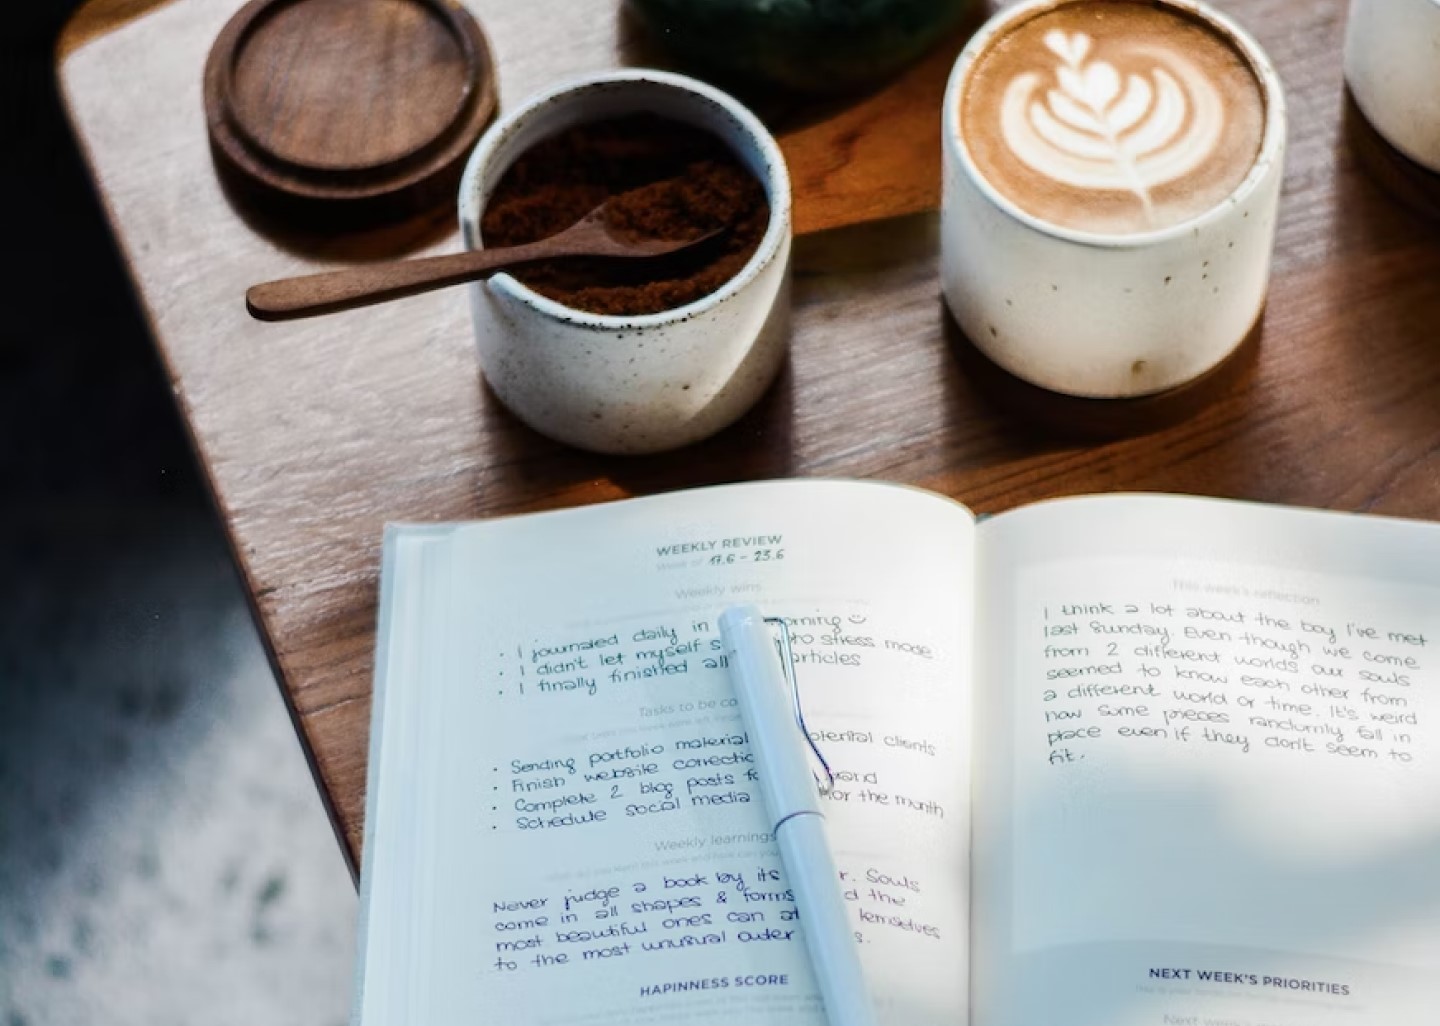 WEEKLY REVIEW
Week of 17.6 - 23.6
Weekly wins
• I journaled daily in morning
• I didn't let myself s to stress mode
• I finally finished all articles
Tasks to be co
• Sending portfolio material clients
• Finish website correctio
• Complete 2 blog posts fo
• Schedule social media for the month
Weekly learnings
Never judge a book by its r. Souls
come in all shapes & forms d the
most beautiful ones can at
to the most unusual outer s.
HAPINNESS SCORE
This week's reflection
I think a lot about the boy I've met
last Sunday. Even though we come
from 2 different worlds our souls
seemed to know each other from
a different world or time. It's weird
how some pieces randomly fall in
place even if they don't seem to
fit.
NEXT WEEK'S PRIORITIES
Next week's